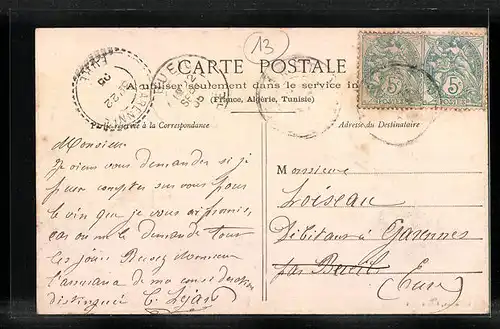 13
CARTE POSTALE
A utiliser seulement dans le service in
(France, Algérie, Tunisie)
Partie réservée à la Correspondance
Adresse du Destinataire
5
5
EURE
GARENNES
22
05
Monsieur
Je viens vous demander si je
puis compter sur vous pour
le vin que je vous ai promis,
car on me le demande tous
les jours Recevez Monsieur
l'assurance de ma considération
distinguée
Monsieur
Loiseau
Débitant à Garennes
par Bueil
(Eure)